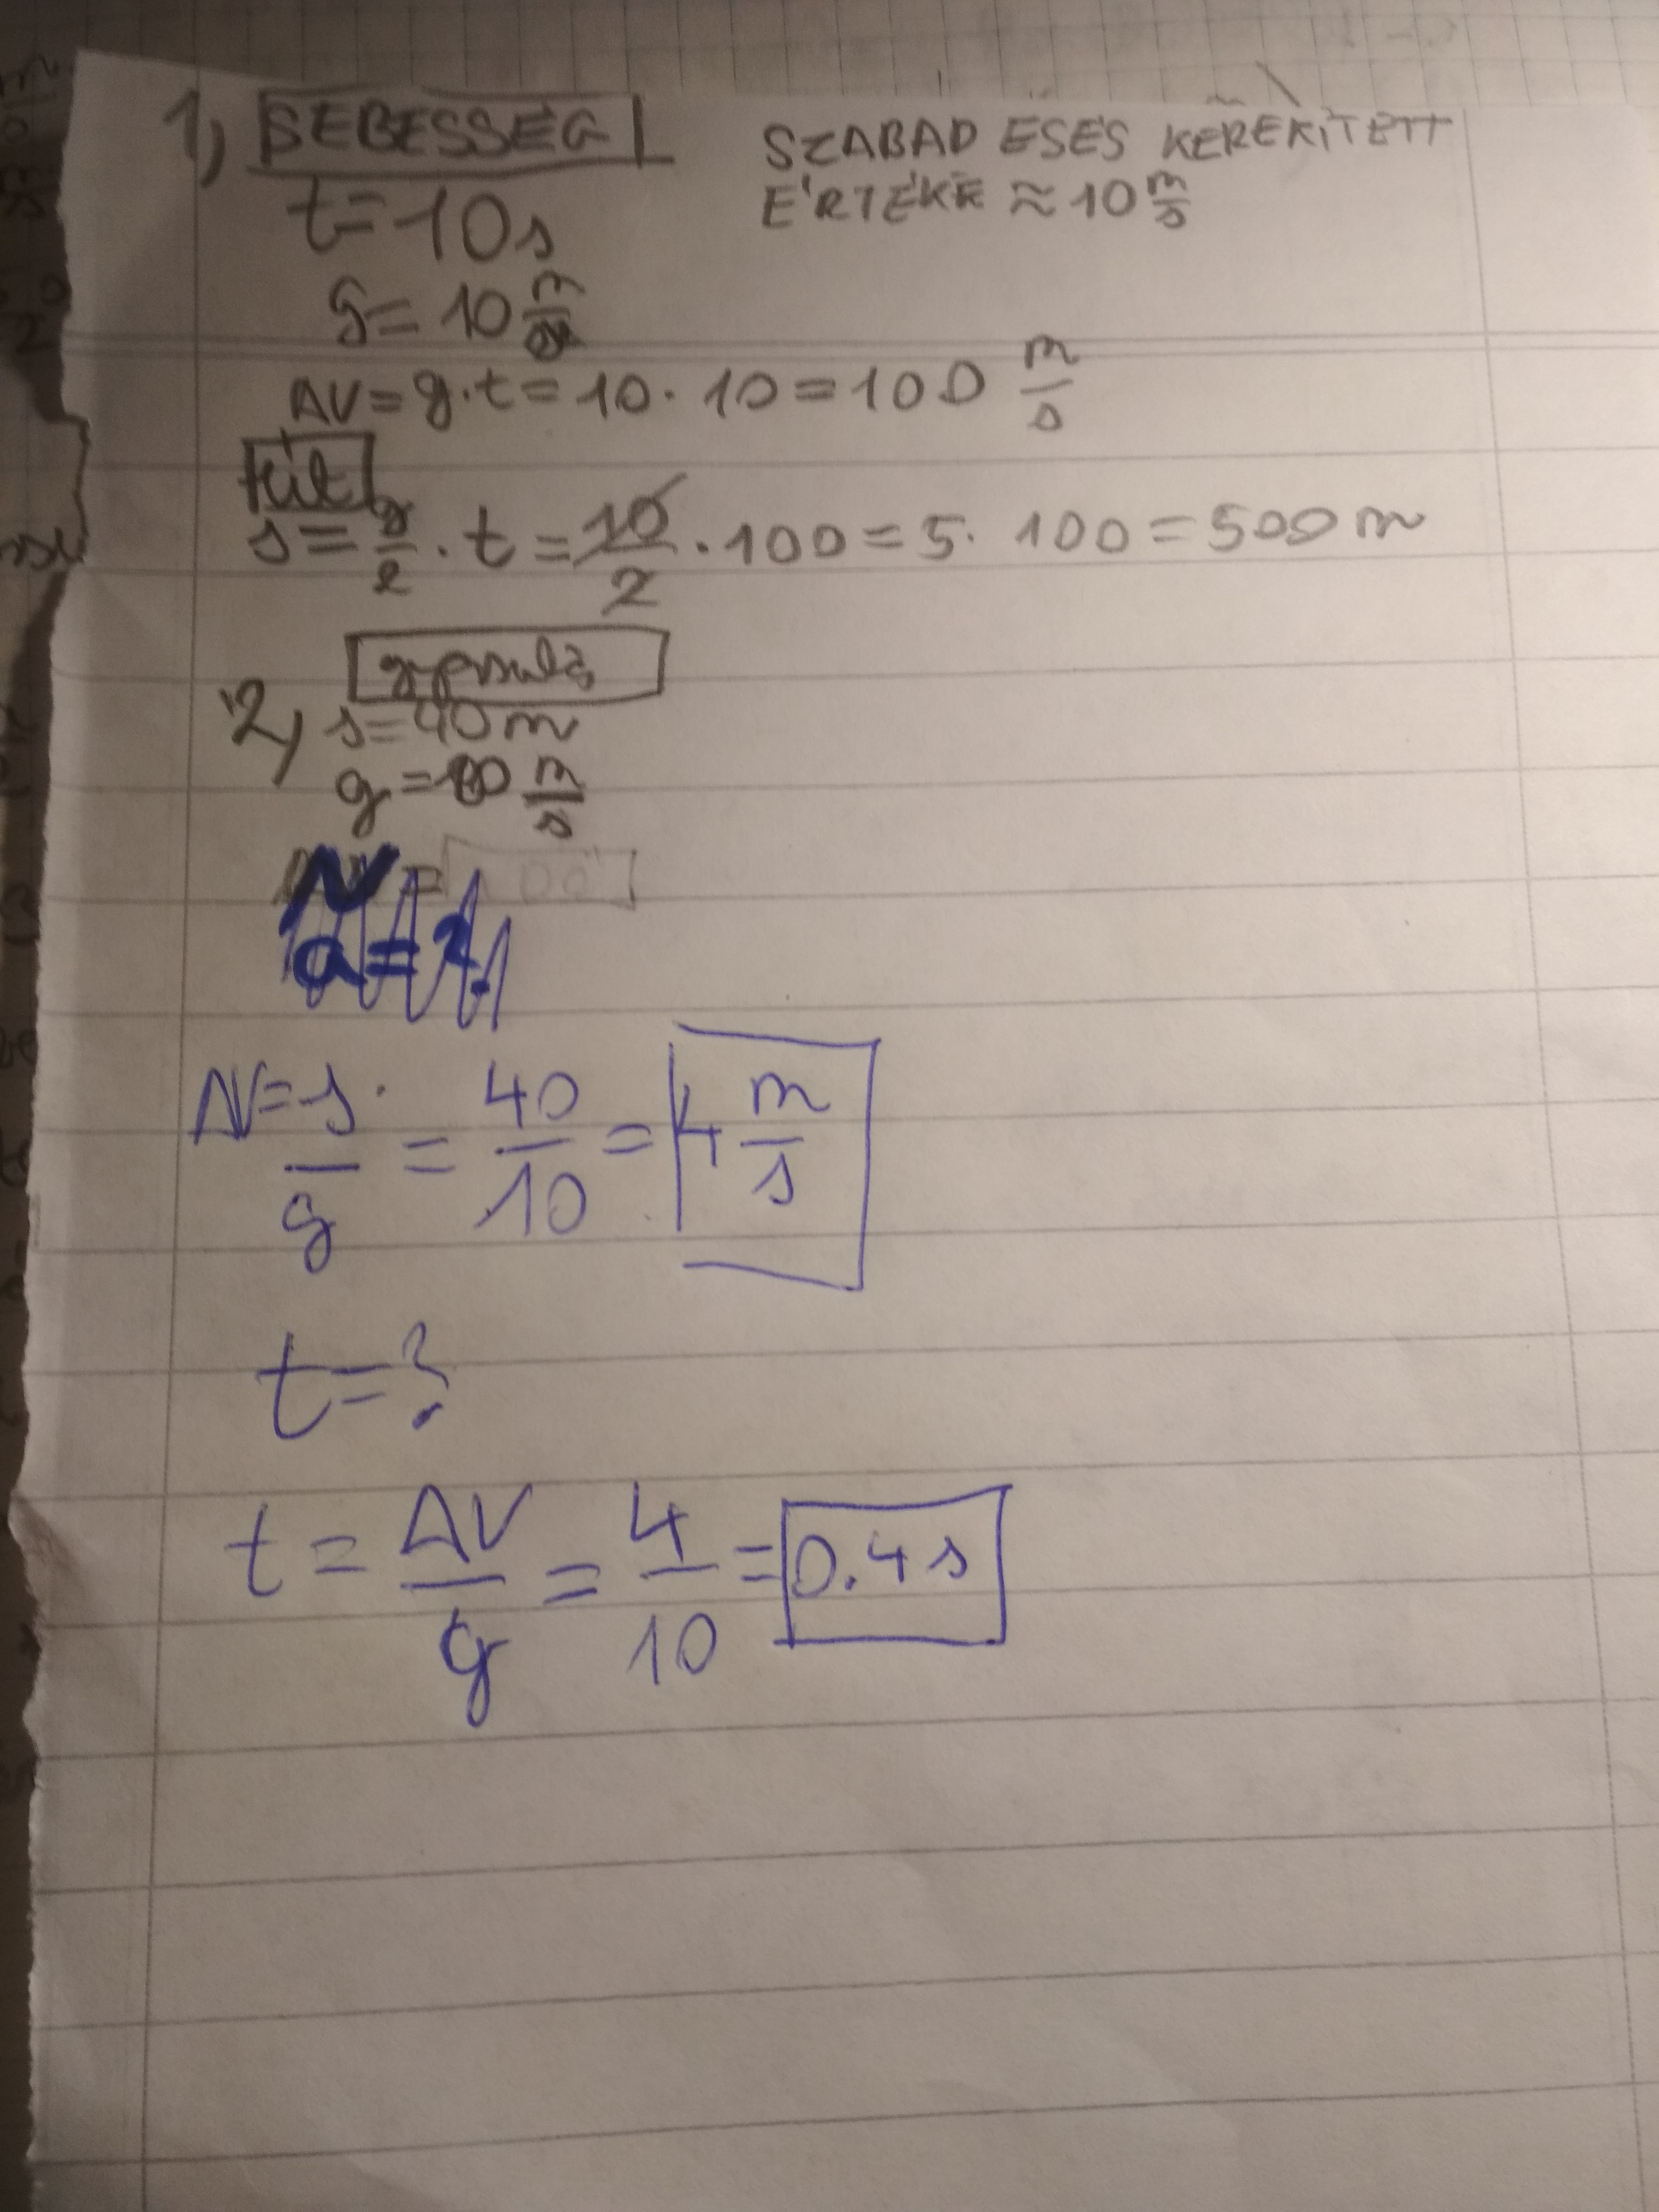 1, SEBESSÉG SZABAD ESÉS KEREKÍTETT
ÉRTÉKE ≈ 10 m/s
t = 10 s
g = 10 m/s
ΔV = g · t = 10 · 10 = 100 m/s
út
s = g/2 · t = 10/2 · 100 = 5 · 100 = 500 m
2, s = 40 m
g = 10 m/s
a =
ΔV = s/g = 40/10 = 4 m/s
t = ?
t = ΔV/g = 4/10 = 0.4 s